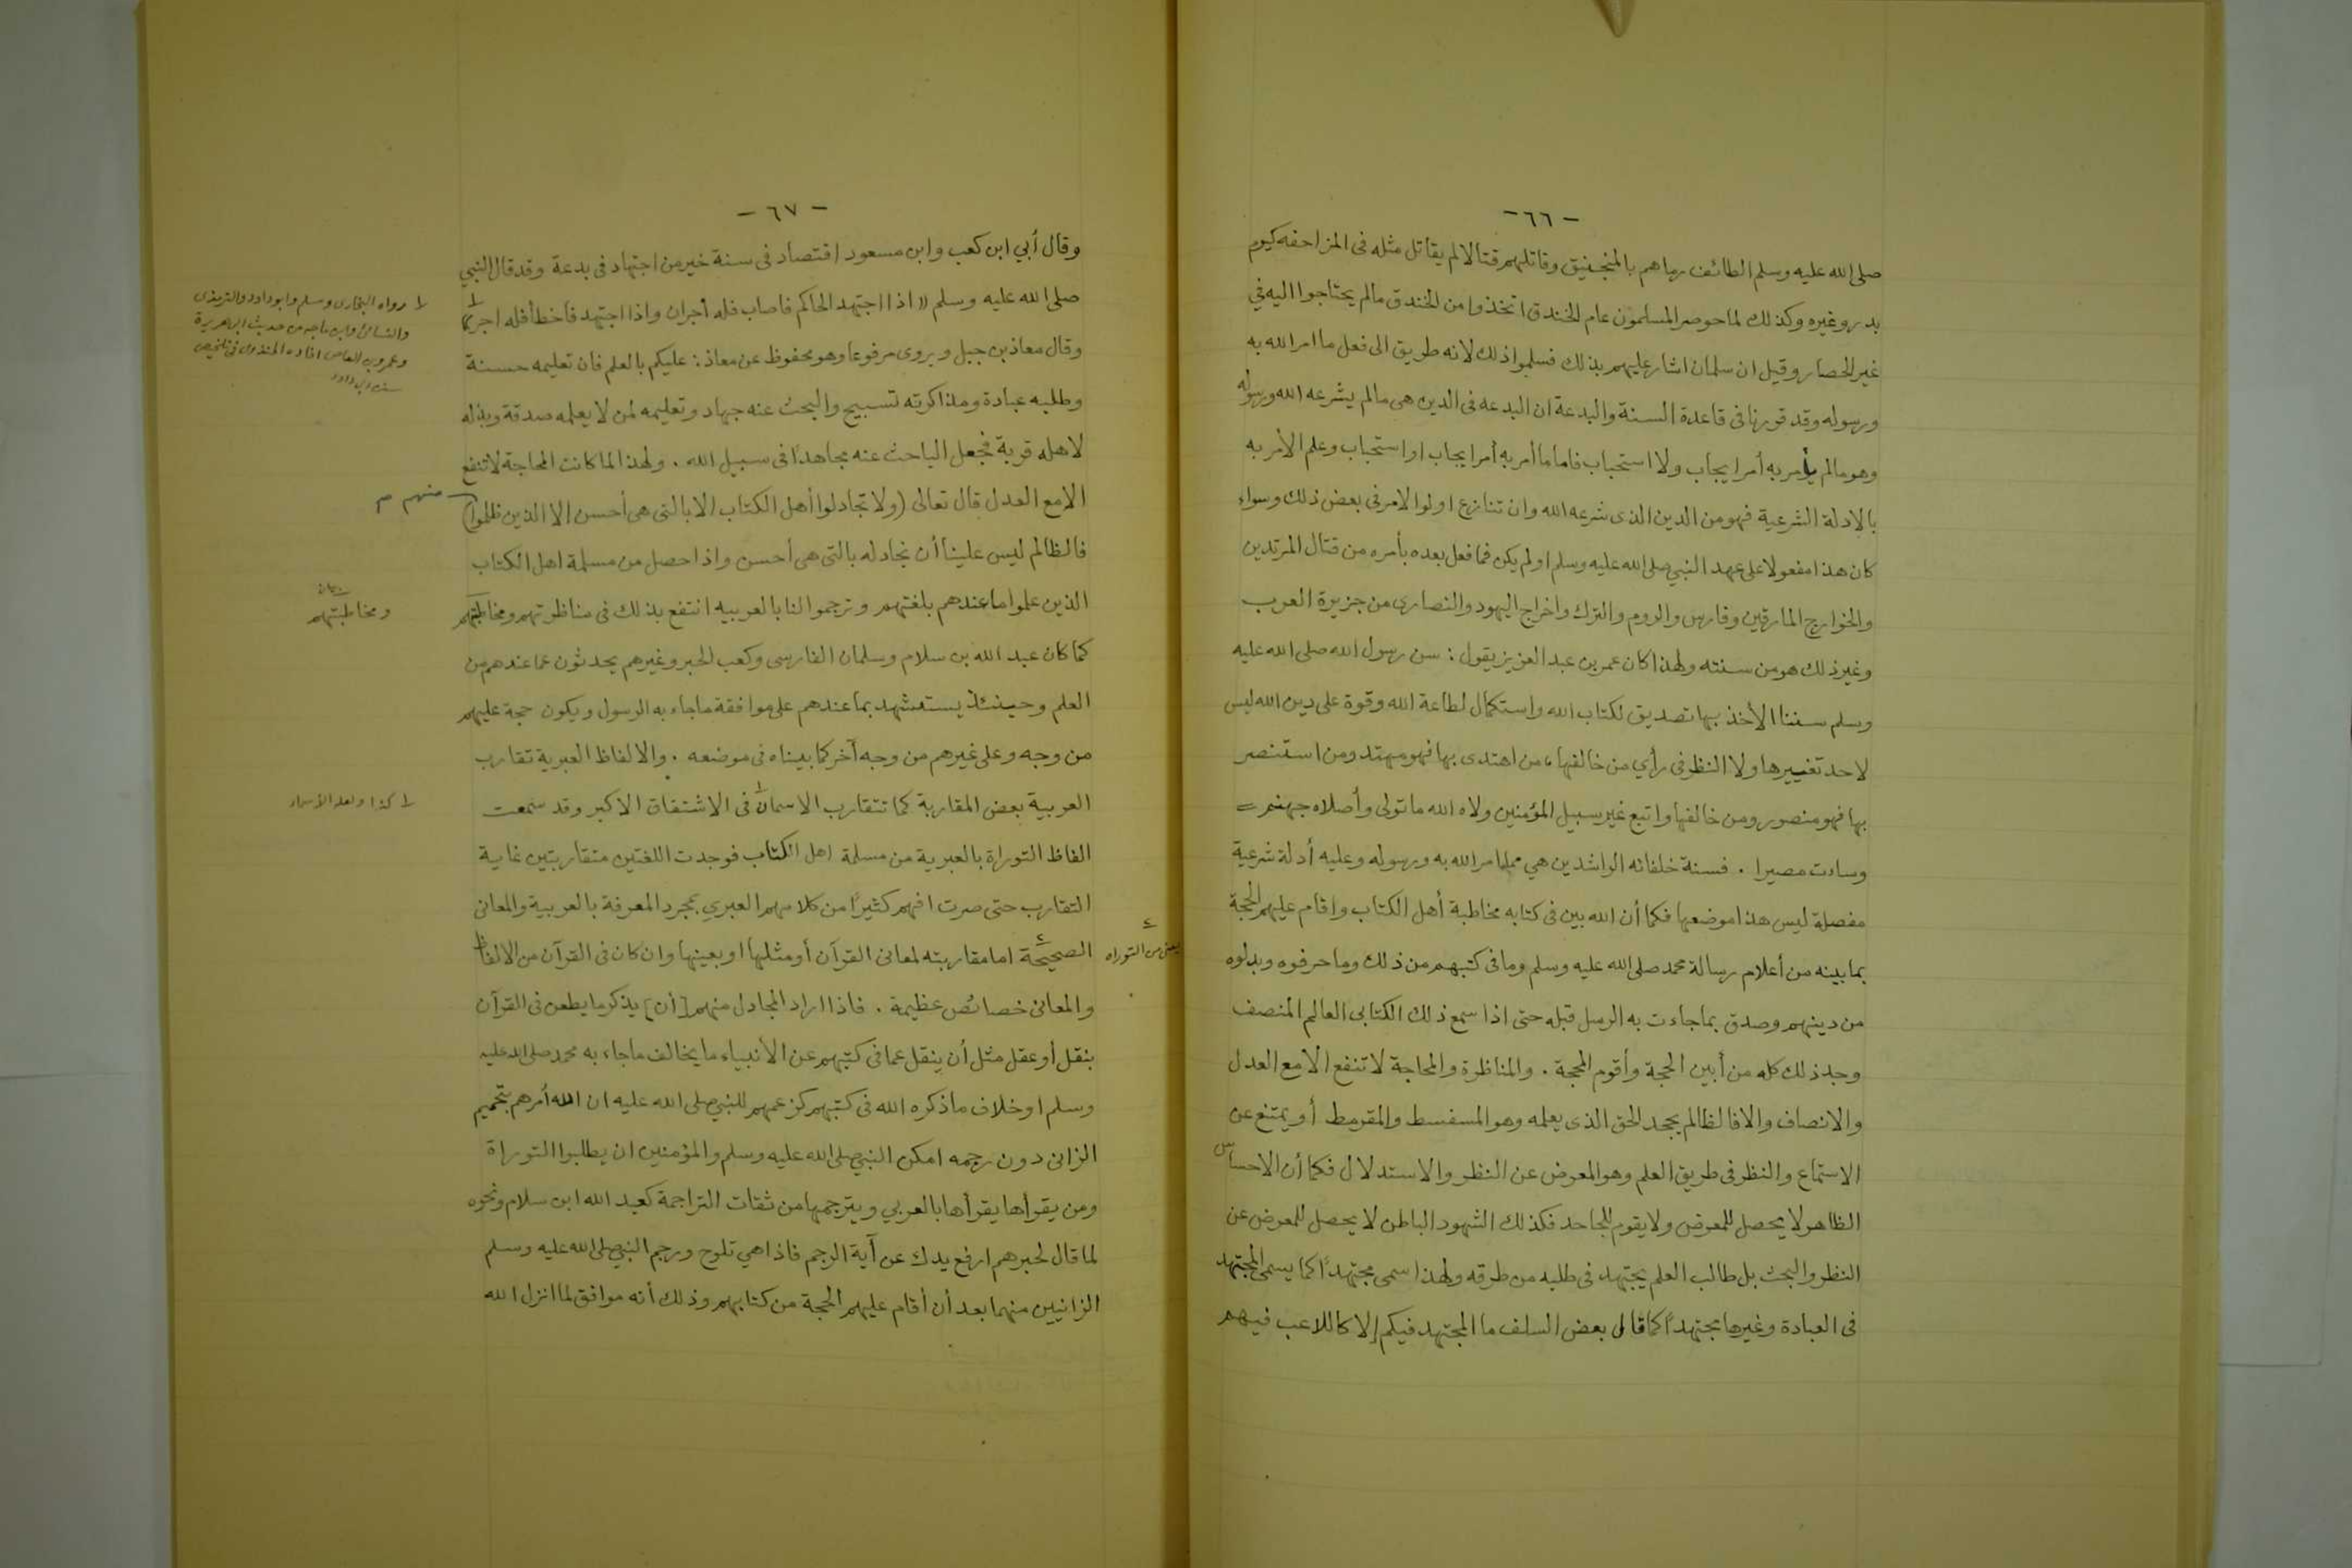 - ٦٦ -
صلى الله عليه وسلم الطائف رماهم بالمنجنيق وقاتلهم قتالا لم يقاتل مثله فى المزاحفه كيوم
بدر وغيره وكذلك لما حوصر المسلمون عام الخندق اتخذوا من الخندق مالم يحتاجوا اليه في
غير الحصار وقيل ان سلمان اشار عليهم بذلك فسلموا ذلك لانه طريق الى فعل ما امر الله به
ورسوله وقد قررنا فى قاعدة السنة والبدعة ان البدعه فى الدين هى مالم يشرعه الله ورسوله
وهو مالم يأمر به أمر ايجاب ولا استحباب فاما ما أمر به أمر ايجاب او استحباب وعلم الأمر به
بالادلة الشرعية فهو من الدين الذى شرعه الله وان تنازع اولوا الامر فى بعض ذلك وسواء
كان هذا مفعولا على عهد النبي صلى الله عليه وسلم او لم يكن فما فعل بعده بأمره من قتال المرتدين
والخوارج المارقين وفارس والروم والترك واخراج اليهود والنصارى من جزيرة العرب
وغير ذلك هو من سنته ولهذا كان عمر بن عبد العزيز يقول : سن رسول الله صلى الله عليه
وسلم سننا الأخذ بها تصديق لكتاب الله واستكمال لطاعة الله وقوة على دين الله ليس
لاحد تغييرها ولا النظر فى رأي من خالفها ، من اهتدى بها فهو مهتد ومن استنصر
بها فهو منصور ومن خالفها واتبع غير سبيل المؤمنين ولاه الله ما تولى وأصلاه جهنم =
وساءت مصيرا . فسنة خلفائه الراشدين هي مما امر الله به ورسوله وعليه أدلة شرعية
مفصلة ليس هذا موضعها فكما أن الله بين فى كتابه مخاطبة أهل الكتاب واقام عليهم الحجة
بما بينه من أعلام رسالة محمد صلى الله عليه وسلم وما فى كتبهم من ذلك وما حرفوه وبدلوه
من دينهم وصدق بما جاءت به الرسل قبله حتى اذا سمع ذلك الكتابى العالم المنصف
وجد ذلك كله من أبين الحجة وأقوم المحجة . والمناظرة والمحاجة لا تنفع الا مع العدل
والانصاف والا فالظالم يجحد الحق الذى يعلمه وهو المسفسط والمقرمط أو يمتنع عن
الاستماع والنظر فى طريق العلم وهو المعرض عن النظر والاستدلال فكما أن الاحساس
الظاهر لا يحصل للمعرض ولا يقوم للجاحد فكذلك الشهود الباطن لا يحصل للمعرض عن
النظر والبحث بل طالب العلم يجتهد فى طلبه من طرقه ولهذا سمى مجتهداً كما يسمى المجتهد
فى العبادة وغيرها مجتهداً كما قال بعض السلف ما المجتهد فيكم إلا كاللاعب فيهم
- ٦٧ -
وقال أبي ابن كعب وابن مسعود اقتصاد فى سنة خير من اجتهاد فى بدعة وقد قال النبي
صلى الله عليه وسلم (( اذا اجتهد الحاكم فاصاب فله أجران واذا اجتهد فأخطأ فله اجر
وقال معاذ بن جبل ويروى مرفوعا وهو محفوظ عن معاذ : عليكم بالعلم فان تعليمه حسنة
وطلبه عبادة ومذاكرته تسبيح والبحث عنه جهاد وتعليمه لمن لا يعلمه صدقة وبذله
لاهله قربة فجعل الباحث عنه مجاهداً فى سبيل الله . ولهذا لما كانت المحاجة لا تنفع
الا مع العدل قال تعالى (ولا تجادلوا أهل الكتاب الا بالتى هى أحسن الا الذين ظلموا)
فالظالم ليس علينا أن نجادله بالتى هى أحسن واذا حصل من مسلمة اهل الكتاب
الذين علموا ما عندهم بلغتهم وترجموا لنا بالعربيه انتفع بذلك فى مناظرتهم ومخاطبتهم
كما كان عبد الله بن سلام وسلمان الفارسى وكعب الحبر وغيرهم يحدثون عما عندهم من
العلم وحينئذ يستشهد بما عندهم على موافقة ما جاء به الرسول ويكون حجة عليهم
من وجه وعلى غيرهم من وجه آخر كما بيناه فى موضعه . والالفاظ العبرية تقارب
العربية بعض المقاربة كما تتقارب الاسمان ١ فى الاشتقاق الاكبر وقد سمعت
الفاظ التوراة بالعبرية من مسلمة اهل الكتاب فوجدت اللغتين متقاربتين غاية
التقارب حتى صرت افهم كثيراً من كلامهم العبري بمجرد المعرفة بالعربية والمعانى
الصحيحة اما مقاربته لمعانى القرآن أو مثلها او بعينها وان كان فى القرآن من الالفاظ
والمعانى خصائص عظيمة . فاذا اراد المجادل منهم [أن] يذكر ما يطعن فى القرآن
بنقل أو عقل مثل أن ينقل عما فى كتبهم عن الأنبياء ما يخالف ما جاء به محمد صلى الله عليه
وسلم او خلاف ما ذكره الله فى كتبهم كزعمهم للنبي صلى الله عليه ان الله أمرهم بتحميم
الزانى دون رجمه امكن النبي صلى الله عليه وسلم والمؤمنين ان يطلبوا التوراة
ومن يقرأها يقرأها بالعربي ويترجمها من ثقات التراجمة كعبد الله ابن سلام ونحوه
لما قال لحبرهم ارفع يدك عن آية الرجم فاذا هي تلوح ورجم النبي صلى الله عليه وسلم
الزانيين منهما بعد أن أقام عليهم الحجة من كتابهم وذلك أنه موافق لما انزل الله
١ رواه البخارى ومسلم وابو داود والترمذى
والنسائى وابن ماجه من حديث ابى هريرة
وعمرو بن العاص افاده المنذرى فى تلخيص
سنن ابى داود
منهم م
ومخاطبتهم
١ كذا ولعله الأسماء
يعنى من التوراه